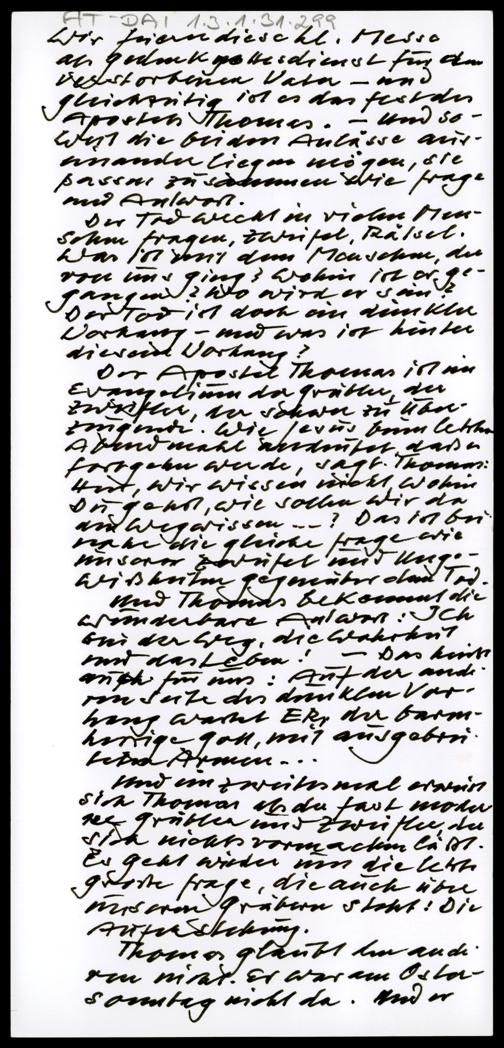 AT-DAI 1.3.1.31.299
Wir feiern diese hl. Messe
als Gedenkgottesdienst für den
verstorbenen Vater – und
gleichzeitig ist es das Fest des
Apostels Thomas. – Und so-
weit die beiden Anlässe aus-
einander liegen mögen, sie
passen zusammen wie Frage
und Antwort.
Der Tod weckt in vielen Men-
schen Fragen, Zweifel, Rätsel.
Was ist mit dem Menschen, der
von uns ging? Wohin ist er ge-
gangen? Wo wird er sein?
Der Tod ist doch ein dunkler
Vorhang – und was ist hinter
diesem Vorhang?
Der Apostel Thomas ist im
Evangelium der Grübler, der
Zweifler, der schwer zu Über-
zeugende. Wie Jesus beim letzten
Abendmahl andeutet, daß er
fortgehen werde, sagt Thomas:
Herr, wir wissen nicht, wohin
Du gehst, wie sollen wir da
den Weg wissen ...? Das ist bei-
nahe die gleiche Frage wie
unserer Zweifel und Unge-
wißheiten gegenüber dem Tod.
Und Thomas bekommt die
wunderbare Antwort: ICH
bin der Weg, die Wahrheit
und das Leben! – Das heißt
auch für uns: Auf der ande-
ren Seite des dunklen Vor-
hang wartet ER, der barm-
herzige Gott, mit ausgebrei-
teten Armen ...
Und ein zweites mal erweist
sich Thomas als der fast moder-
ne Grübler und Zweifler, der
sich nichts vormachen läßt.
Es geht wieder um die letzte
große Frage, die auch über
unseren Gräbern steht: Die
Auferstehung.
Thomas glaubt den ande-
ren nicht. Er war am Oster-
sonntag nicht da. Und er